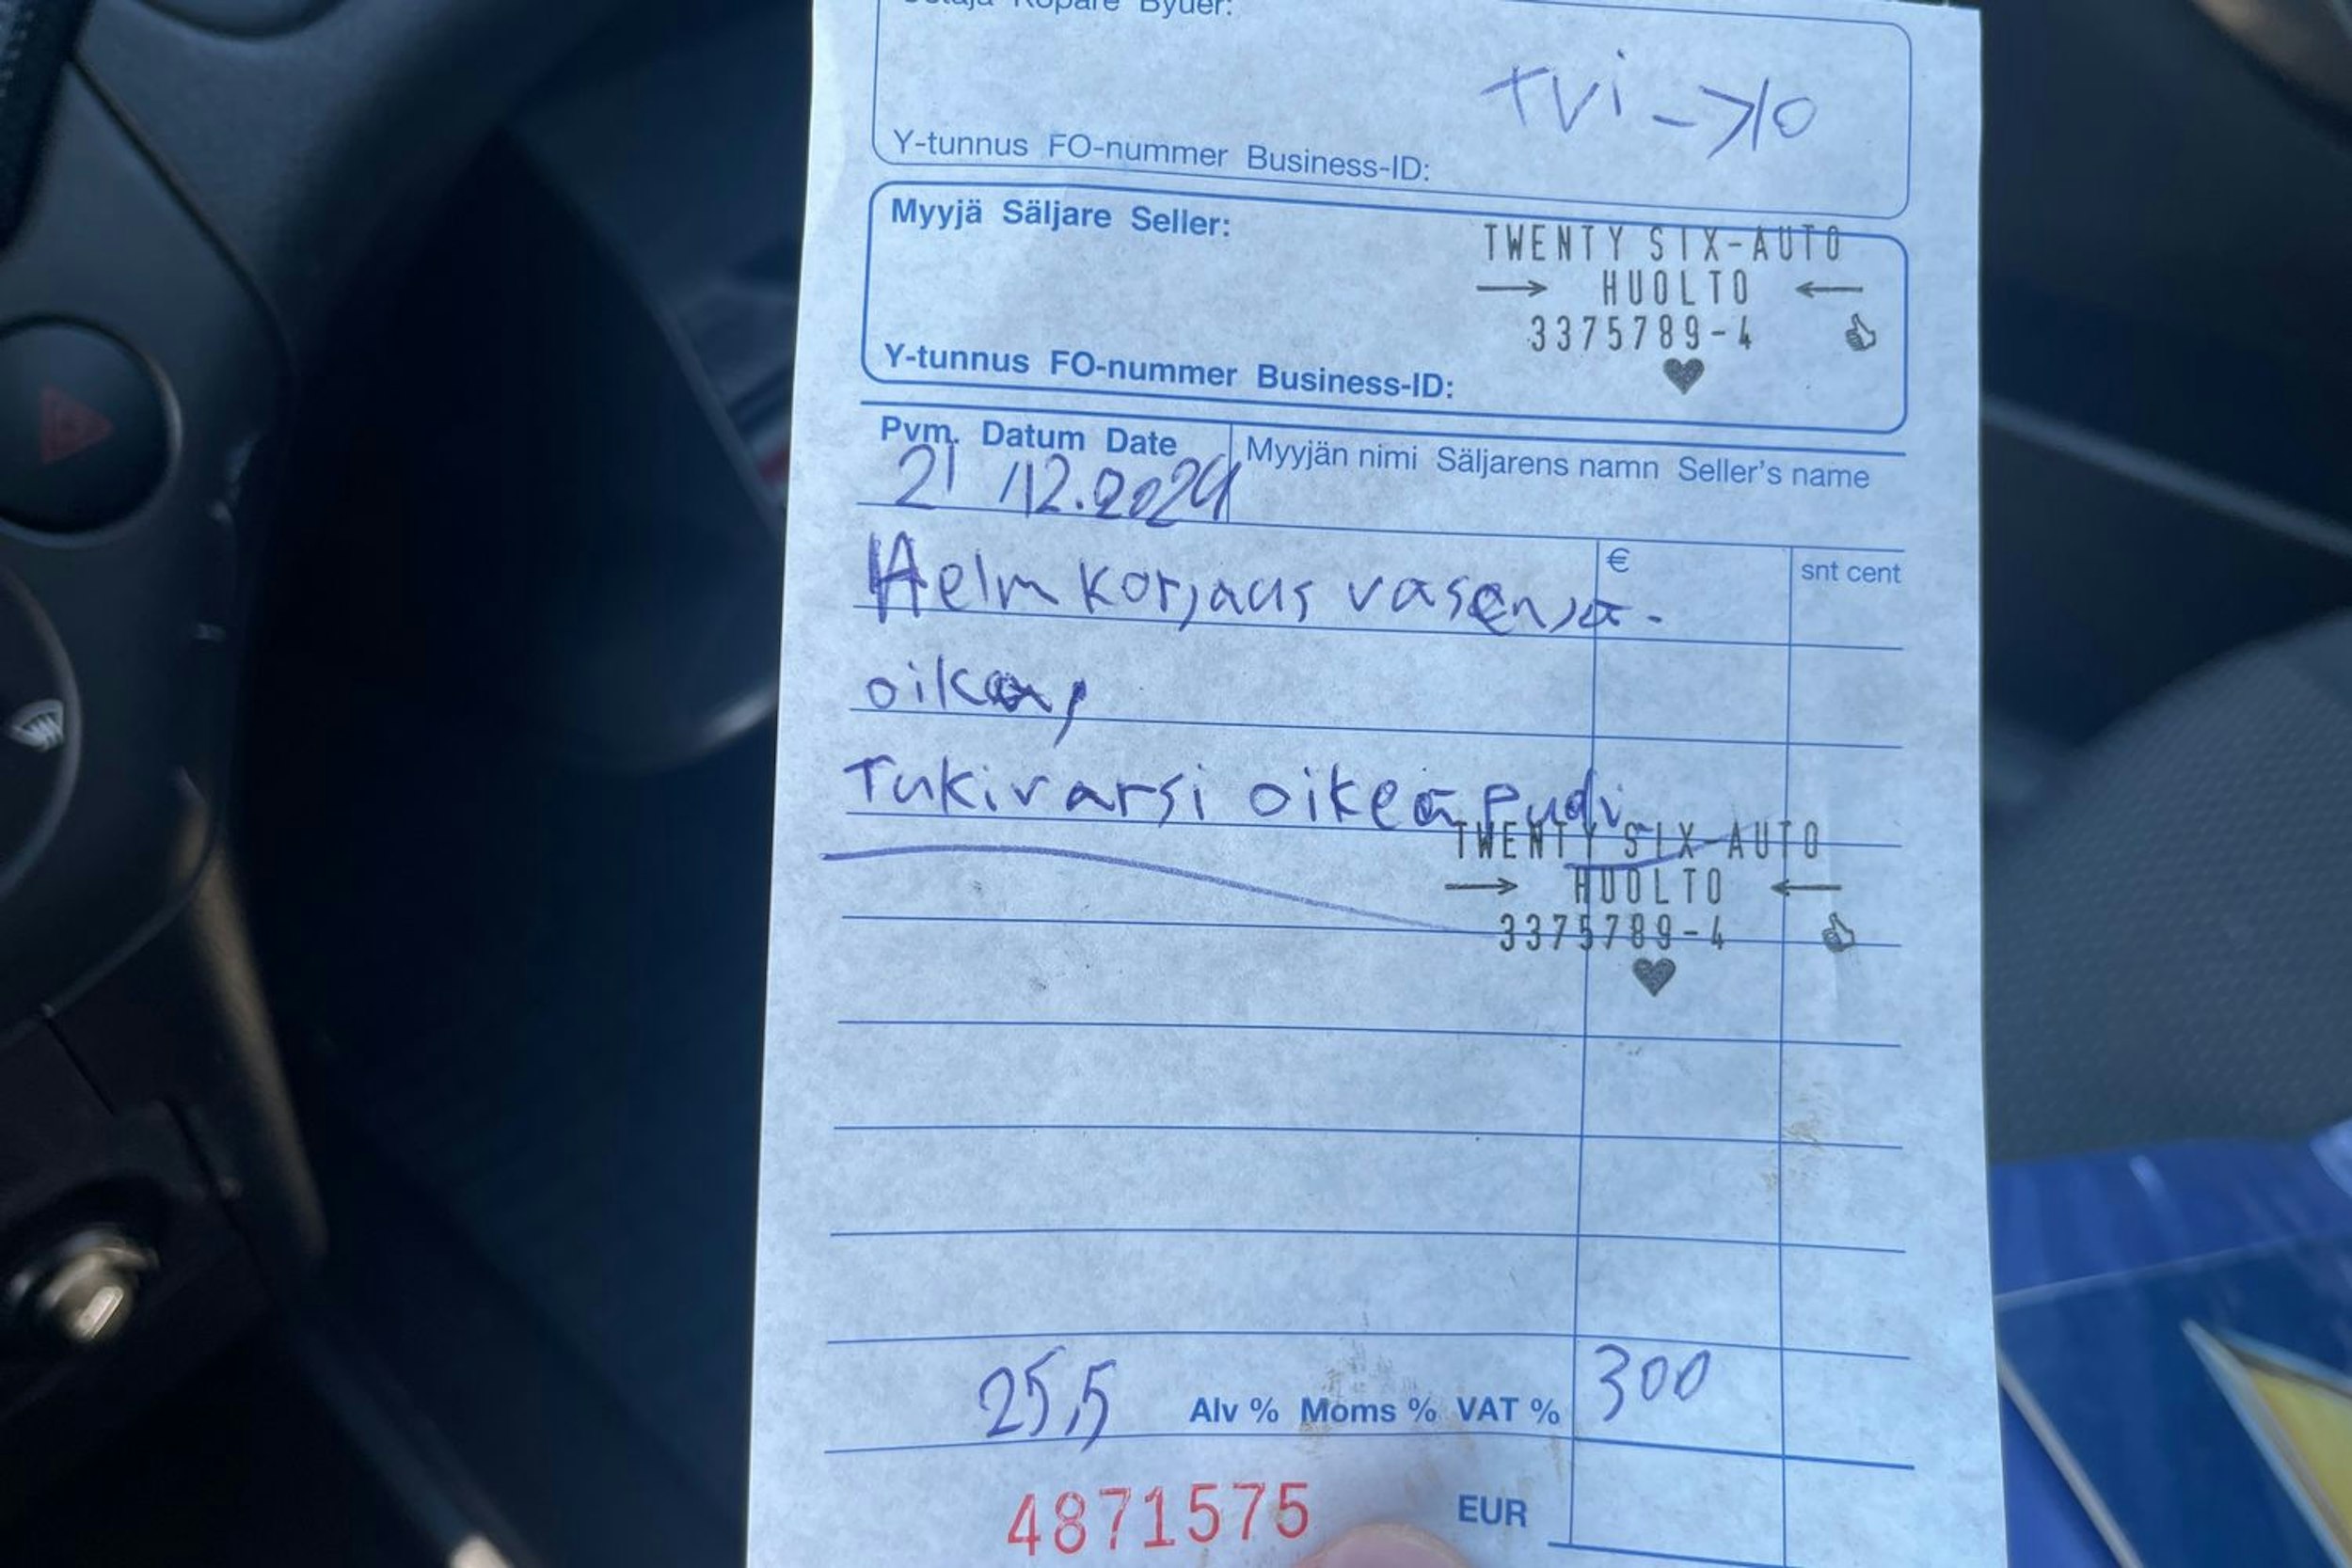 Ostaja Köpare Byuer:
TVI-710
Y-tunnus FO-nummer Business-ID:
Myyjä Säljare Seller:
TWENTY SIX-AUTO
→ HUOLTO ←
3375789-4 👍
♥
Y-tunnus FO-nummer Business-ID:
Pvm. Datum Date
Myyjän nimi Säljarens namn Seller's name
21/12.2024
€ snt cent
Helmkorjaus vasen ja-
oikea,
Tukivarsi oikea
TWENTY SIX-AUTO
→ HUOLTO ←
3375789-4 👍
♥
25,5 Alv % Moms % VAT % 300
4871575 EUR